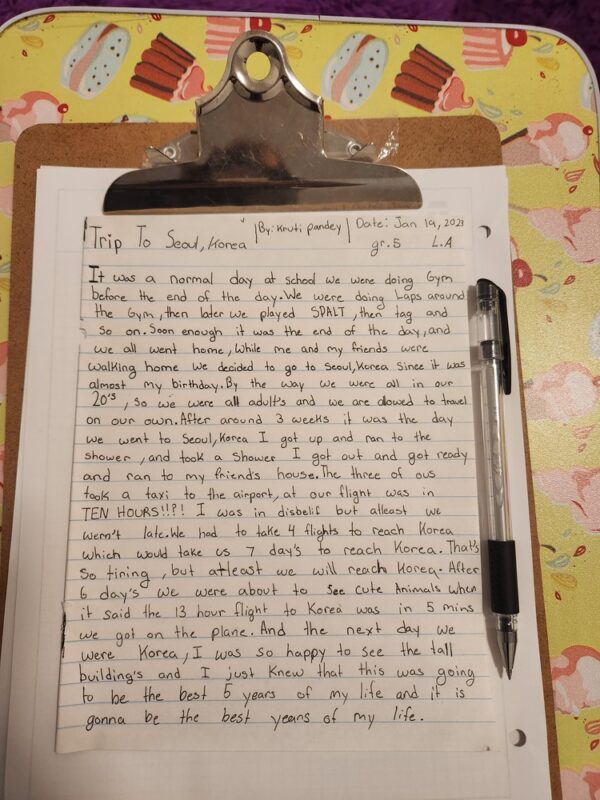 Trip To Seoul, Korea
By: Kruti pandey
Date: Jan 19, 2023
gr.5 L.A
It was a normal day at school we were doing Gym
before the end of the day. We were doing Laps around
the Gym, then later we played SPALT, then tag and
so on. Soon enough it was the end of the day, and
we all went home, While me and my friends were
walking home we decided to go to Seoul, Korea since it was
almost my birthday. By the way we were all in our
20's, so we were all adult's and we are alowed to travel
on our own. After around 3 weeks it was the day
we went to Seoul, Korea I got up and ran to the
shower, and took a shower I got out and got ready
and ran to my friend's house. The three of ous
took a taxi to the airport, at our flight was in
TEN HOURS!!?! I was in disbelif but atleast we
wern't late. We had to take 4 flights to reach Korea
which would take us 7 day's to reach Korea. That's
so tiring, but atleast we will reach Korea. After
6 day's we were about to see cute Animals when
it said the 13 hour flight to Korea was in 5 mins
we got on the plane. And the next day we
were Korea, I was so happy to see the tall
building's and I just knew that this was going
to be the best 5 years of my life and it is
gonna be the best years of my life.